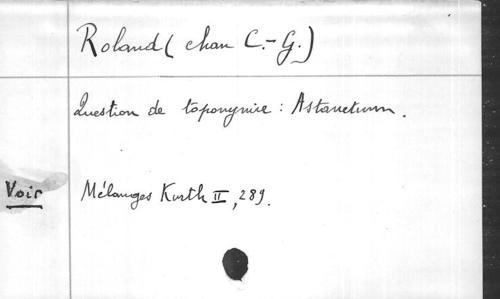 Roland (chan C.-G.)
Question de toponymie : Astanetum.
Voir Mélanges Kurth II, 289.